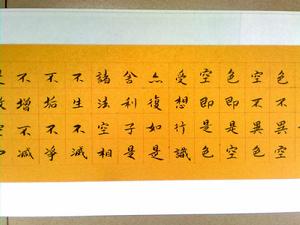 色不異空
空不異色
色即是空
空即是色
受想行識
亦復如是
舍利子是
諸法空相
不生不滅
不垢不淨
不增不減